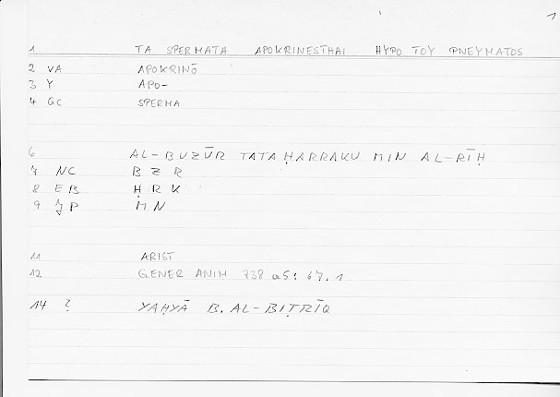 1
1 TA SPERMATA APOKRINESTHAI HYPO TOY PNEYMATOS
2 VA APOKRINŌ
3 Y APO-
4 GC SPERMA
6 AL-BUZŪR TATAḤARRAKU MIN AL-RĪḤ
7 NC B Z R
8 EB Ḥ R K
9 JP M N
11 ARIST
12 GENER ANIM 738 a5: 67.1
14 ? YAḤYĀ B. AL-BIṬRĪQ